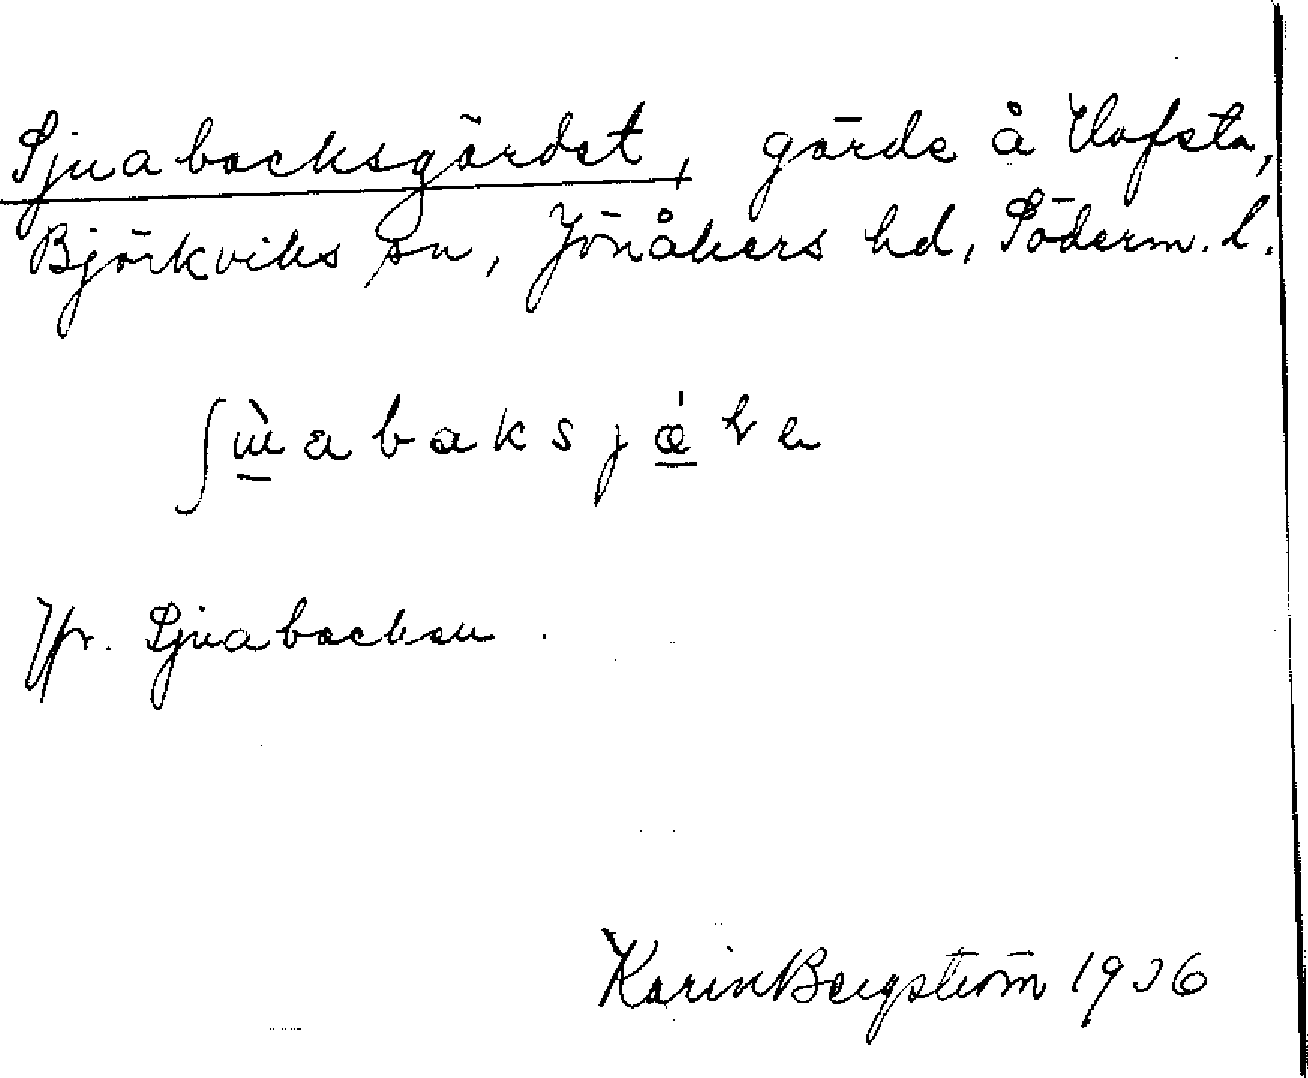 Sjuabacksgärdet, gärde å Ulofsta,
Björkviks sn, Jönåkers hd, Söderm. l.
Jfr. Sjuabacken.
Karin Bergström 1936